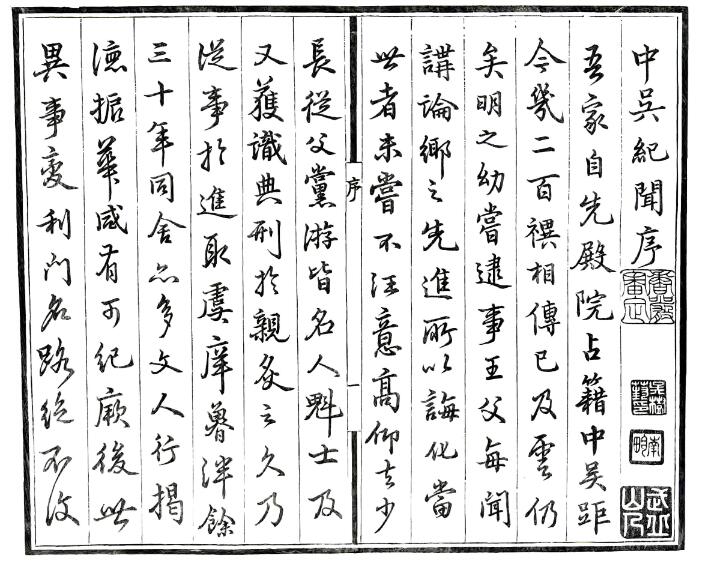 中吳紀聞序
吾家自先殿院占籍中吳距
今幾二百禩相傳已及雲仍
矣明之幼嘗逮事王父每聞
講論鄉之先進所以誨化當
世者未嘗不注意高仰之少
序
一
長從父黨游皆名人魁士及
又獲識典刑於親炙之久乃
從事於進取虞庠魯泮餘
三十年同舍亦多文人行揭
德振華咸有可紀厥後世
異事變利門名路絕不